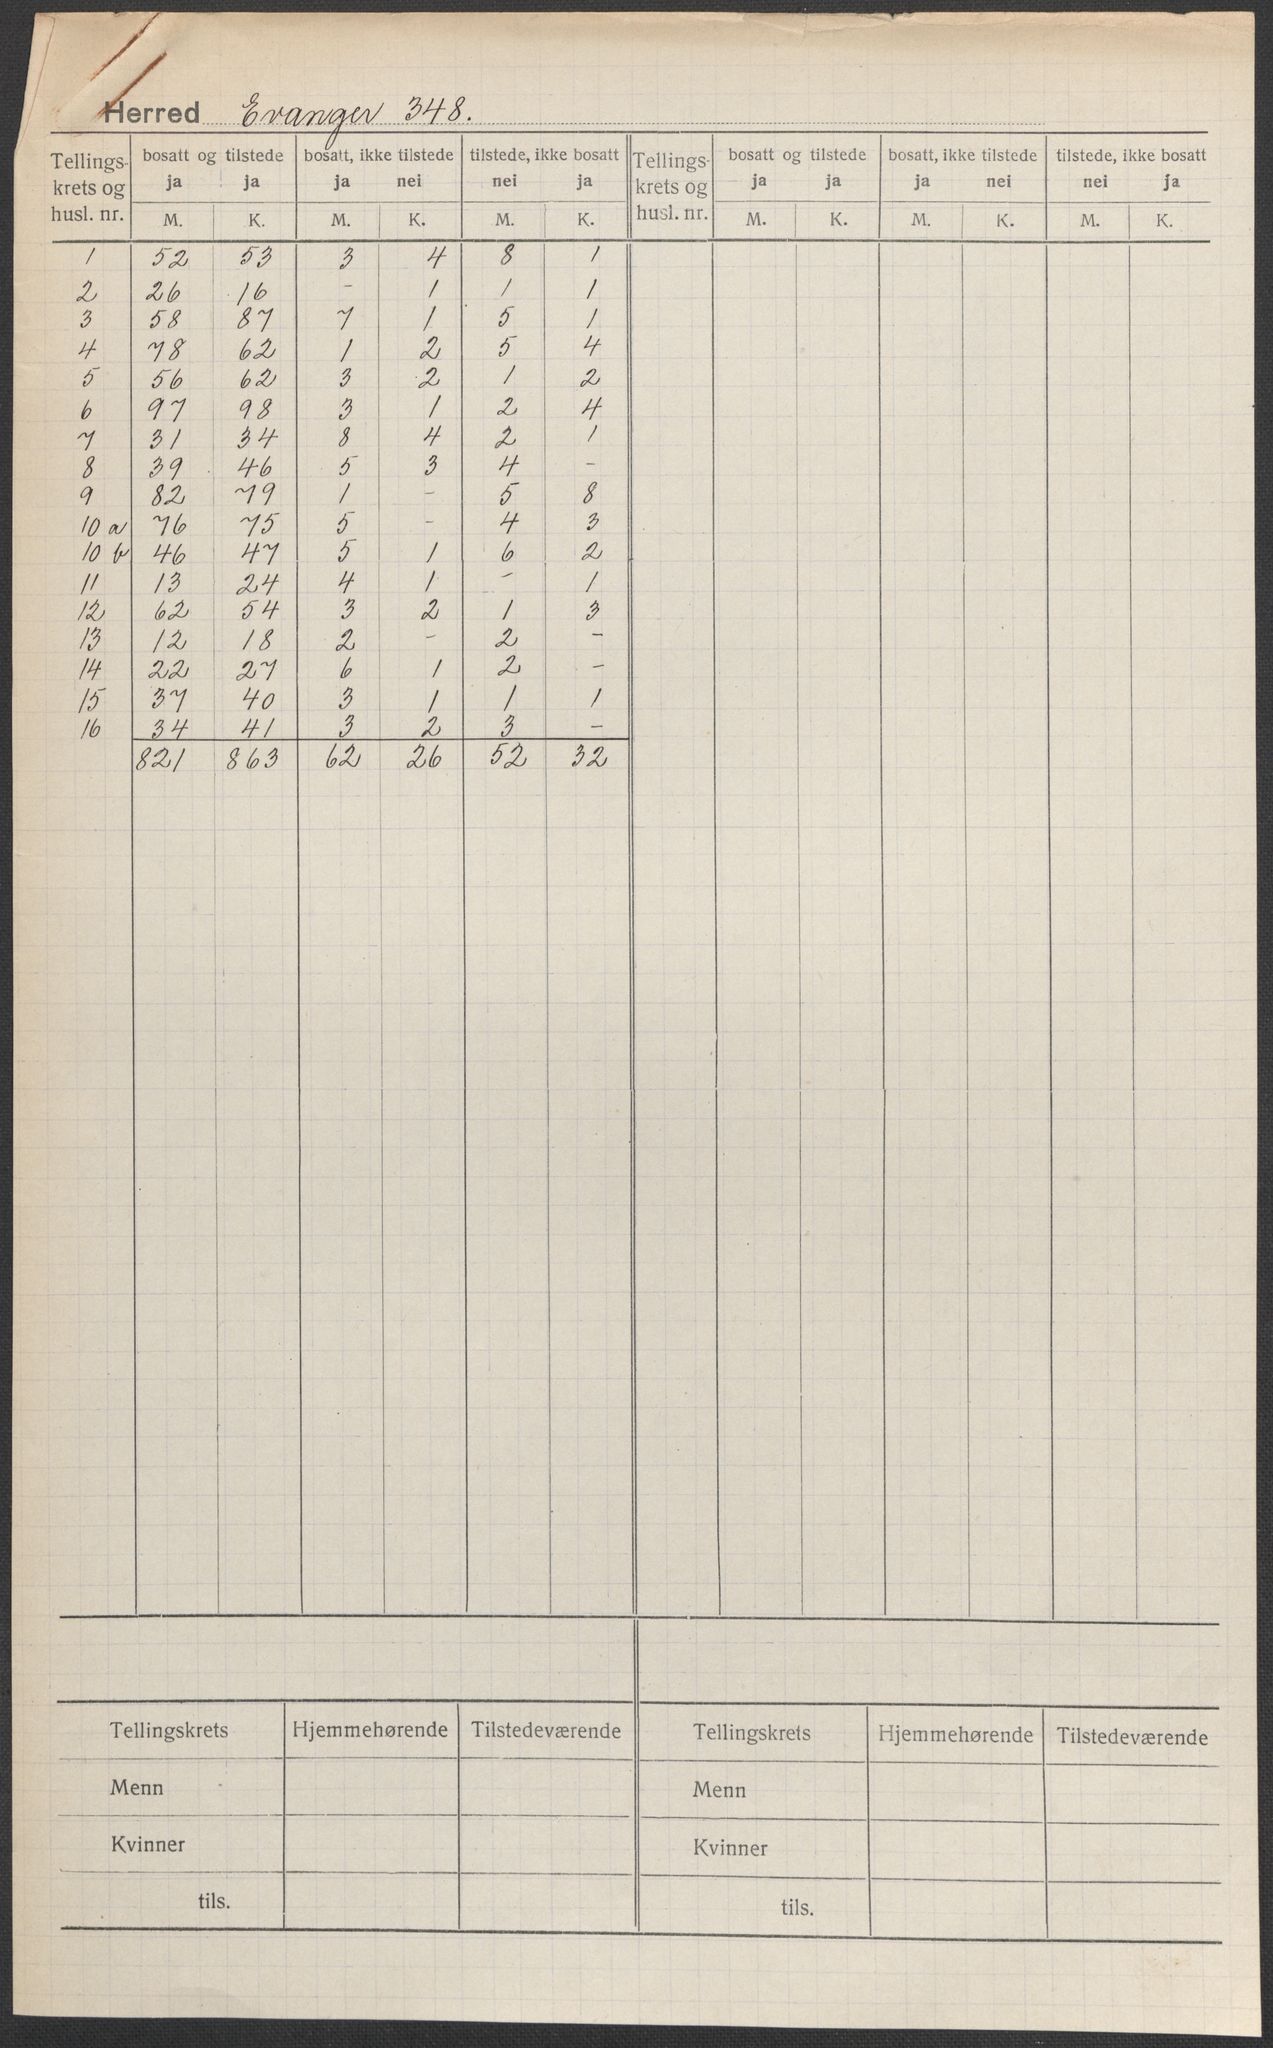 Herred Evanger 348.
Tellings- krets og husl. nr. | bosatt og tilstede | bosatt, ikke tilstede | tilstede, ikke bosatt | Tellings- krets og husl. nr. | bosatt og tilstede | bosatt, ikke tilstede | tilstede, ikke bosatt
ja ja | ja nei | nei ja | ja ja | ja nei | nei ja
M. K. M. K. M. K. | M. K. M. K. M. K.
1 52 53 3 4 8 1
2 26 16 - 1 1 1
3 58 87 7 1 5 1
4 78 62 1 2 5 4
5 56 62 3 2 1 2
6 97 98 3 1 2 4
7 31 34 8 4 2 1
8 39 46 5 3 4 -
9 82 79 1 - 5 8
10 a 76 75 5 - 4 3
10 b 46 47 5 1 6 2
11 13 24 4 1 - 1
12 62 54 3 2 1 3
13 12 18 2 - 2 -
14 22 27 6 1 2 -
15 37 40 3 1 1 1
16 34 41 3 2 3 -
821 863 62 26 52 32
Tellingskrets Hjemmehørende Tilstedeværende Tellingskrets Hjemmehørende Tilstedeværende
Menn Menn
Kvinner Kvinner
tils. tils.